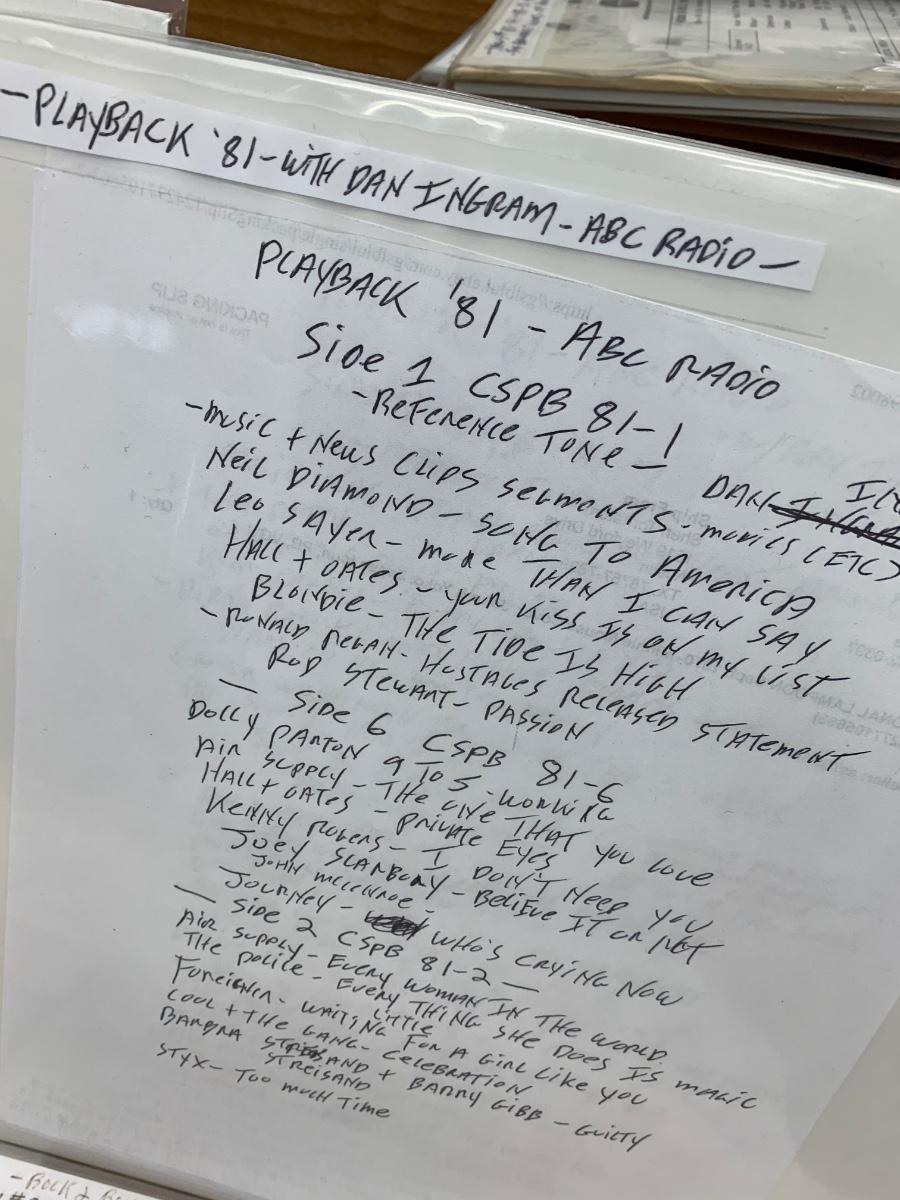 -PLAYBACK '81-WITH DAN INGRAM-ABC RADIO-
PLAYBACK '81 - ABC RADIO
Side 1 CSPB 81-1
-REFERENCE TONE-
-MUSIC + NEWS CLIPS SEGMENTS - MOVIES (ETC)
DAN
NEIL DIAMOND - SONG TO AMERICA
LEO SAYER - MORE THAN I CAN SAY
HALL + OATES - YOUR KISS IS ON MY LIST
BLONDIE - THE TIDE IS HIGH
-RONALD REGAN - HOSTAGES RELEASED STATEMENT
ROD STEWART - PASSION
— SIDE 6 CSPB 81-6
DOLLY PARTON 9 TO 5 - WORKING
AIR SUPPLY - THE ONE THAT YOU LOVE
HALL + OATES - PRIVATE EYES
KENNY ROGERS - I DON'T NEED YOU
JOEY SCARBORY - BELIEVE IT OR NOT
JOHN MCCENROE -
JOURNEY - WHO'S CRYING NOW
— SIDE 2 CSPB 81-2 —
AIR SUPPLY - EVERY WOMAN IN THE WORLD.
THE POLICE - EVERY LITTLE THING SHE DOES IS MAGIC
FOREIGNER - WAITING FOR A GIRL LIKE YOU
COOL + THE GANG - CELEBRATION
BARBRA STREISAND + BARRY GIBB - GUILTY
STREISAND
STYX - TOO MUCH TIME
PACKING SLIP